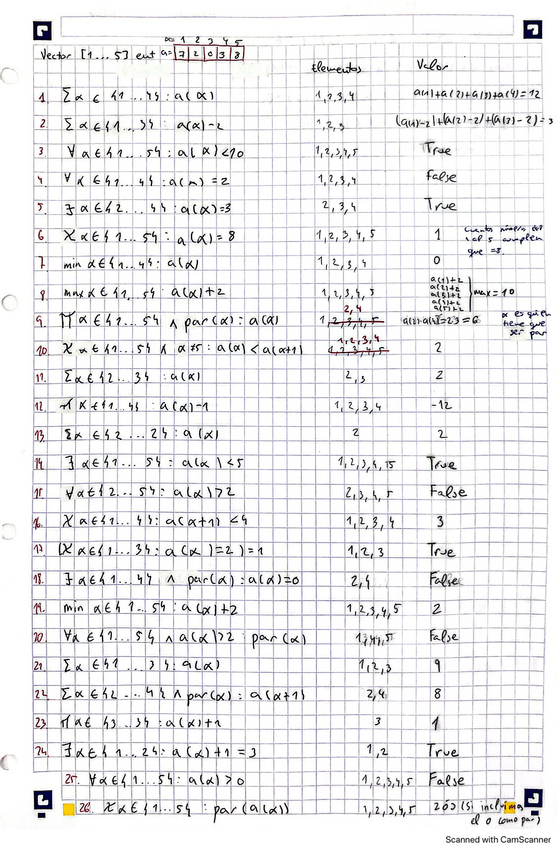 α= 1 2 3 4 5
Vector [1...5] ent a= 7 2 0 3 8
Elementos Valor
1. Σα ∈ {1...4}: a(α) 1,2,3,4 a(1)+a(2)+a(3)+a(4)=12
2 Σα ∈ {1...3}: a(α)-2 1,2,3 (a(1)-2)+(a(2)-2)+(a(3)-2)=3
3 ∀α∈{1...5}: a(α)<10 1,2,3,4,5 True
4 ∀α∈{1...4}: a(α)=2 1,2,3,4 False
5 ∃α∈{2...4}: a(α)=3 2,3,4 True
6 χα∈{1...5}: a(α)=8 1,2,3,4,5 1 cuantos números del 1 al 5 cumplen que =8.
7. min α∈{1...4}: a(α) 1,2,3,4 0
8. max α∈{1...5}: a(α)+2 1,2,3,4,5 a(1)+2 a(2)+2 a(3)+2 a(4)+2 a(5)+2 } max=10
9. Πα∈{1...5} ∧ par(α): a(α) 2,4 1,2,3,4,5 a(2)·a(4)=2·3=6 α es quien tiene que ser par
10. χα∈{1...5} ∧ α≠5: a(α)<a(α+1) 1,2,3,4 1,2,3,4,5 2
11. Σα∈{2...3}: a(α) 2,3 2
12. Πα∈{1...4}: a(α)-1 1,2,3,4 -12
13. Σα∈{2...2}: a(α) 2 2
14. ∃α∈{1...5}: a(α)<5 1,2,3,4,5 True
15. ∀α∈{2...5}: a(α)>2 2,3,4,5 False
16. χα∈{1...4}: a(α+1)<4 1,2,3,4 3
17. (χα∈{1...3}: a(α)=2)=1 1,2,3 True
18. ∃α∈{1...4} ∧ par(α): a(α)=0 2,4 False
19. min α∈{1...5}: a(α)+2 1,2,3,4,5 2
20. ∀α∈{1...5} ∧ a(α)>2: par(α) 1,4,5 False
21. Σα∈{1...3}: a(α) 1,2,3 9
22. Σα∈{2...4} ∧ par(α): a(α+1) 2,4 8
23 Πα∈{3...3}: a(α)+1 3 1
24. ∃α∈{1...2}: a(α)+1=3 1,2 True
25. ∀α∈{1...5}: a(α)>0 1,2,3,4,5 False
26. χα∈{1...5}: par(a(α)) 1,2,3,4,5 2ó3 (si incluimos el 0 como par)
Scanned with CamScanner